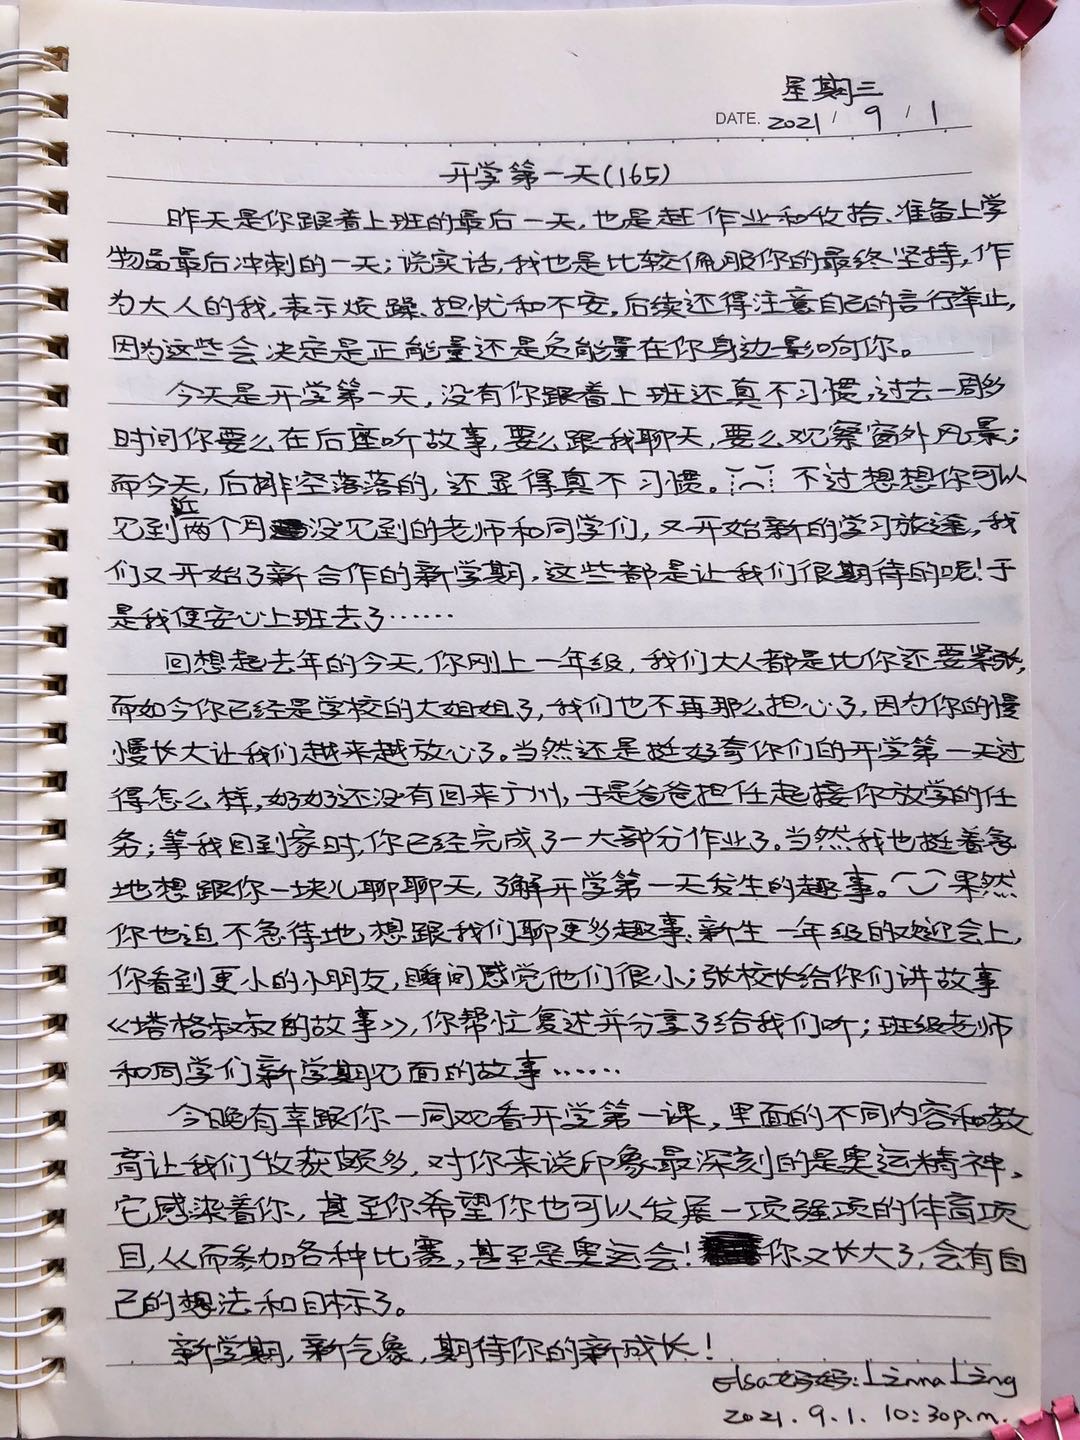 星期三
DATE. 2021 / 9 / 1
开学第一天(165)
昨天是你跟着上班的最后一天,也是赶作业和收拾、准备上学
物品最后冲刺的一天;说实话,我也是比较佩服你的最终坚持,作
为大人的我,表示烦躁、担忧和不安,后续还得注意自己的言行举止,
因为这些会决定是正能量还是负能量在你身边影响你。
今天是开学第一天,没有你跟着上班还真不习惯,过去一周多
时间你要么在后座听故事,要么跟我聊天,要么观察窗外风景;
而今天,后排空落落的,还显得真不习惯。不过想想你可以
见到近两个月没见到的老师和同学们,又开始新的学习旅途,我
们又开始了新合作的新学期,这些都是让我们很期待的呢!于
是我便安心上班去了……
回想起去年的今天,你刚上一年级,我们大人都是比你还要紧张,
而如今你已经是学校的大姐姐了,我们也不再那么担心了,因为你的慢
慢长大让我们越来越放心了。当然还是挺好奇你们的开学第一天过
得怎么样,奶奶还没有回来广州,于是爸爸担任起接你放学的任
务;等我回到家时,你已经完成了一大部分作业了。当然我也挺着急
地想跟你一块儿聊聊天,了解开学第一天发生的趣事。果然
你也迫不急待地想跟我们聊更多趣事:新生一年级的欢迎会上,
你看到更小的小朋友,瞬间感觉他们很小;张校长给你们讲故事
《塔格叔叔的故事》,你帮忙复述并分享了给我们听;班级老师
和同学们新学期见面的故事……
今晚有幸跟你一同观看开学第一课,里面的不同内容和教
育让我们收获颇多,对你来说印象最深刻的是奥运精神,
它感染着你,甚至你希望你也可以发展一项强项的体育项
目,从而参加各种比赛,甚至是奥运会!你又长大了,会有自
己的想法和目标了。
新学期,新气象,期待你的新成长!
Elsa妈妈:Linna Ling
2021.9.1. 10:30p.m.